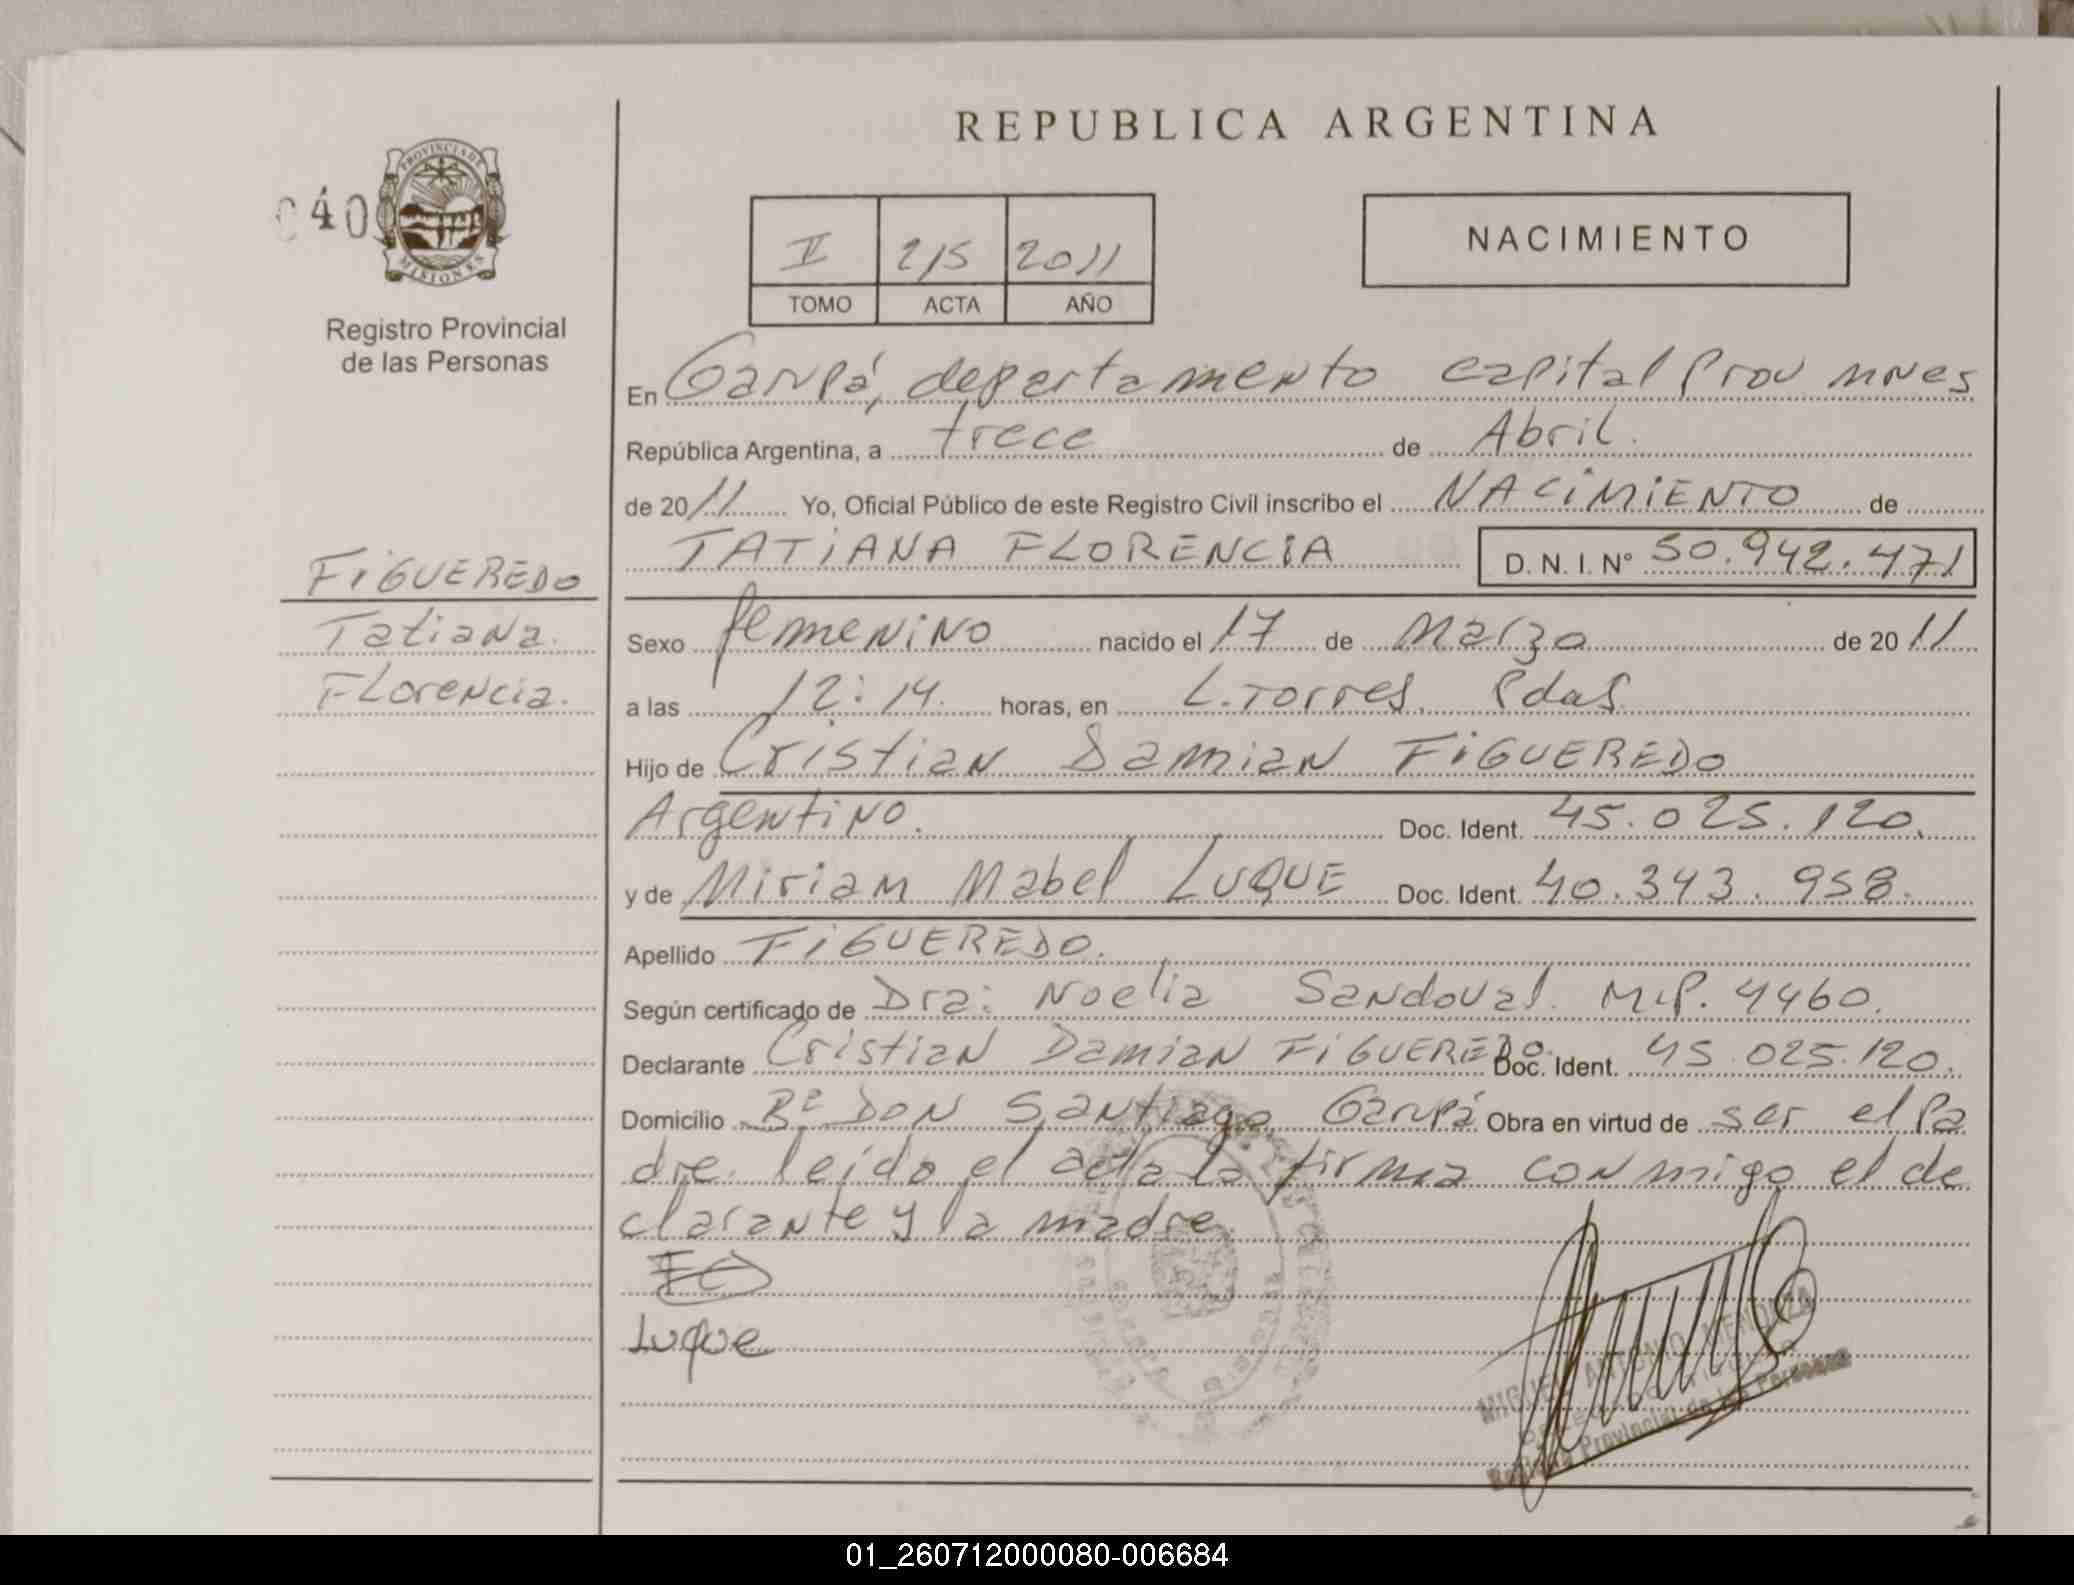 REPUBLICA ARGENTINA
040
PROVINCIA DE
MISIONES
Registro Provincial
de las Personas
II 215 2011
TOMO ACTA AÑO
NACIMIENTO
En Garupá, departamento capital Prov mnes
República Argentina, a trece de Abril.
de 2011 Yo, Oficial Público de este Registro Civil inscribo el NACIMIENTO de
TATIANA FLORENCIA D. N. I. Nº 50.942.471
FIGUEREDO
Tatiana.
Florencia.
Sexo femenino nacido el 17 de Marzo de 2011
a las 12:14. horas, en L. Torres. Pdas.
Hijo de Cristian Damian FIGUEREDO
Argentino. Doc. Ident. 45.025.120.
y de Miriam Mabel LUQUE Doc. Ident. 40.343.958.
Apellido FIGUEREDO.
Según certificado de Dra: Noelia Sandoval. M.P. 4460.
Declarante Cristian Damian FIGUEREDO. Doc. Ident. 45.025.120.
Domicilio Bº DON Santiago Garupá Obra en virtud de ser el Pa
dre. leído el acta la firma conmigo el de
clarante y la madre.
Luque
MIGUEL ANTONIO MENDOZA
Provincial de las Personas
01_260712000080-006684